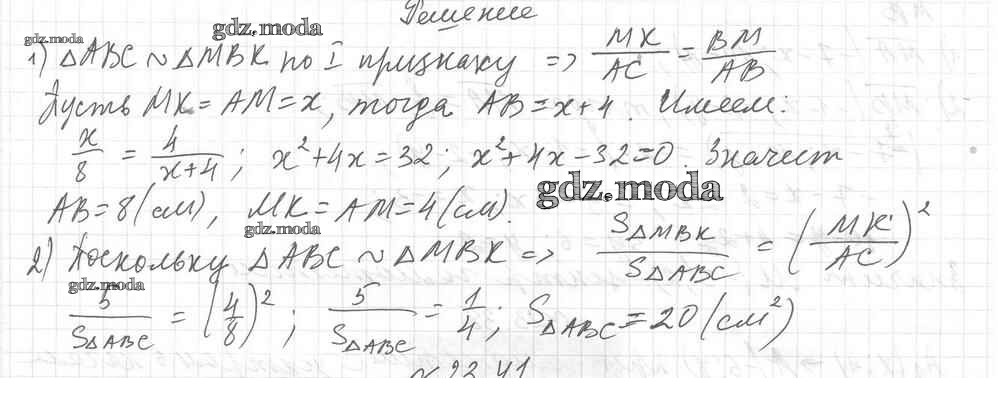 Решение
gdz.moda
gdz.moda
1) △ABC ~ △MBK по I признаку => MK/AC = BM/AB
Пусть MK = AM = x, тогда AB = x+4. Имеем:
x/8 = 4/(x+4); x²+4x=32; x²+4x-32=0. Значит
gdz.moda
AB = 8 (см), MK = AM = 4 (см).
gdz.moda
2) Поскольку △ABC ~ △MBK => S△MBK/S△ABC = (MK/AC)²
gdz.moda
5/S△ABC = (4/8)²; 5/S△ABC = 1/4; S△ABC = 20 (см²)